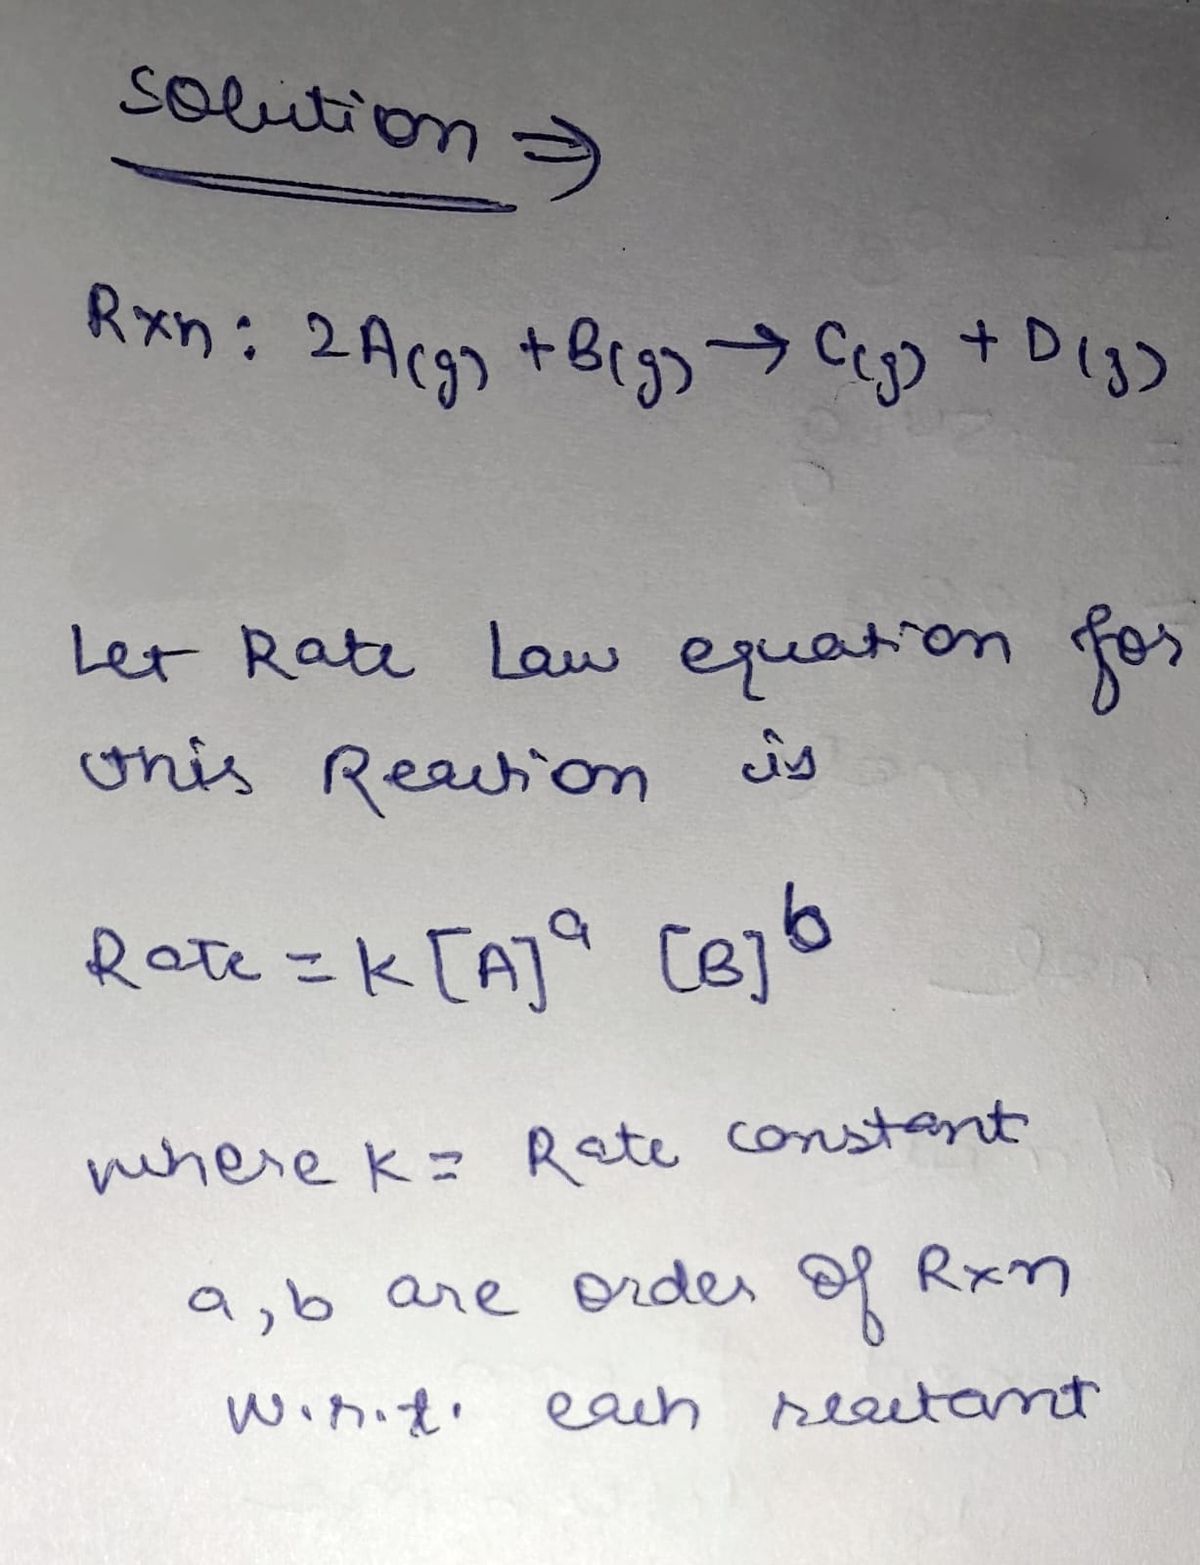 Solution ⇒
Rxn: 2A(g) + B(g) → C(g) + D(g)
Let Rate Law equation for
this Reaction is
Rate = k [A]^a [B]^b
where k = Rate constant
a, b are order of Rxn
w.r.t. each reactant